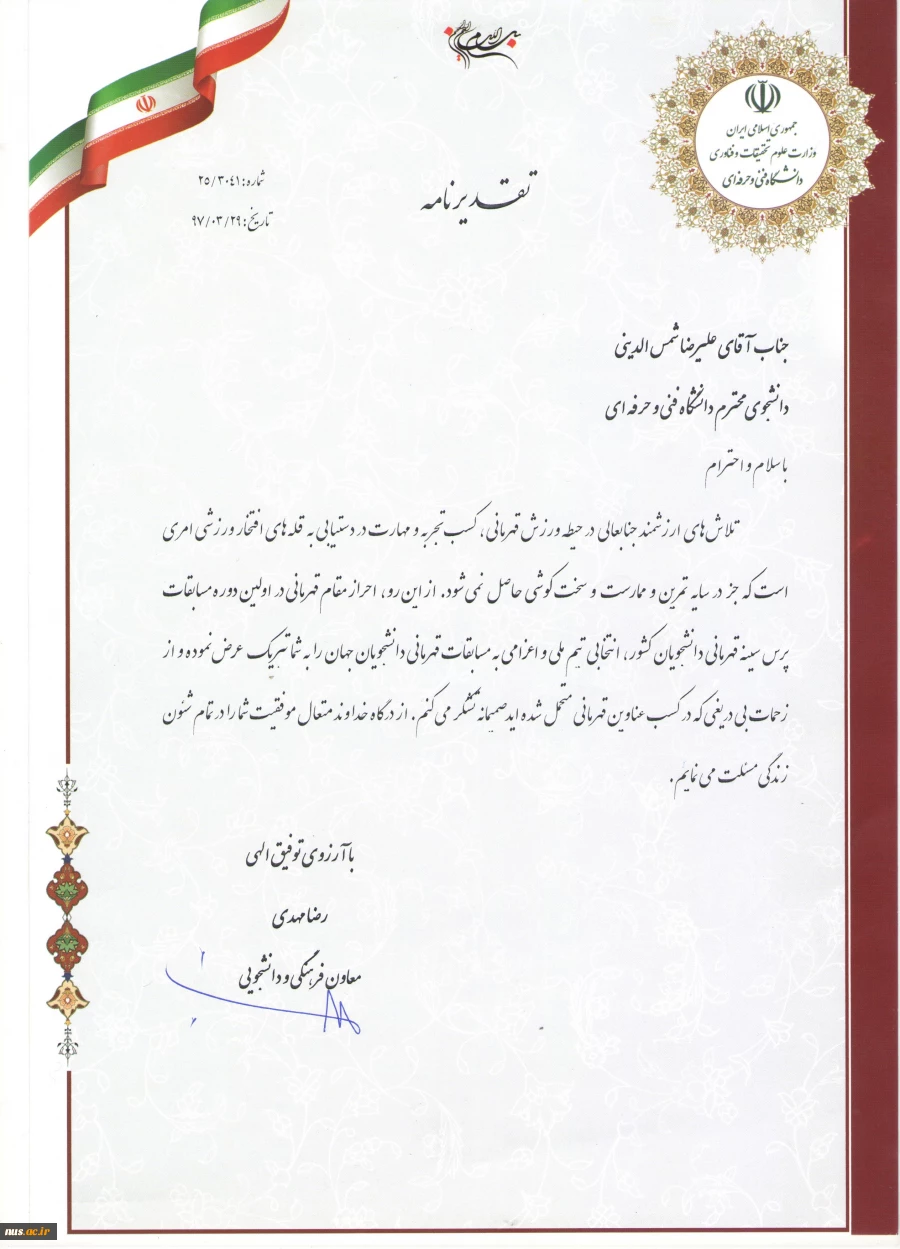 بسم الله الرحمن الرحیم
جمهوری اسلامی ایران
وزارت علوم تحقیقات و فناوری
دانشگاه فنی و حرفه‌ای
تقدیرنامه
شماره: ۲۵/۳۰۴۱
تاریخ: ۹۷/۰۳/۲۹
جناب آقای علیرضا شمس الدینی
دانشجوی محترم دانشگاه فنی و حرفه ای
با سلام و احترام
تلاش‌های ارزشمند جنابعالی در حیطه ورزش قهرمانی، کسب تجربه و مهارت در دستیابی به قله های افتخار ورزشی امری
است که جز در سایه تمرین و ممارست و سخت کوشی حاصل نمی شود. از این رو، احراز مقام قهرمانی در اولین دوره مسابقات
پرس سینه قهرمانی دانشجویان کشور، انتخابی تیم ملی و اعزامی به مسابقات قهرمانی دانشجویان جهان را به شما تبریک عرض نموده و از
زحمات بی دریغی که در کسب عناوین قهرمانی متحمل شده اید صمیمانه تشکر می کنم. از درگاه خداوند متعال موفقیت شما را در تمام شئون
زندگی مسئلت می نمایم.
با آرزوی توفیق الهی
رضا مهدی
معاون فرهنگی و دانشجویی
nus.ac.ir